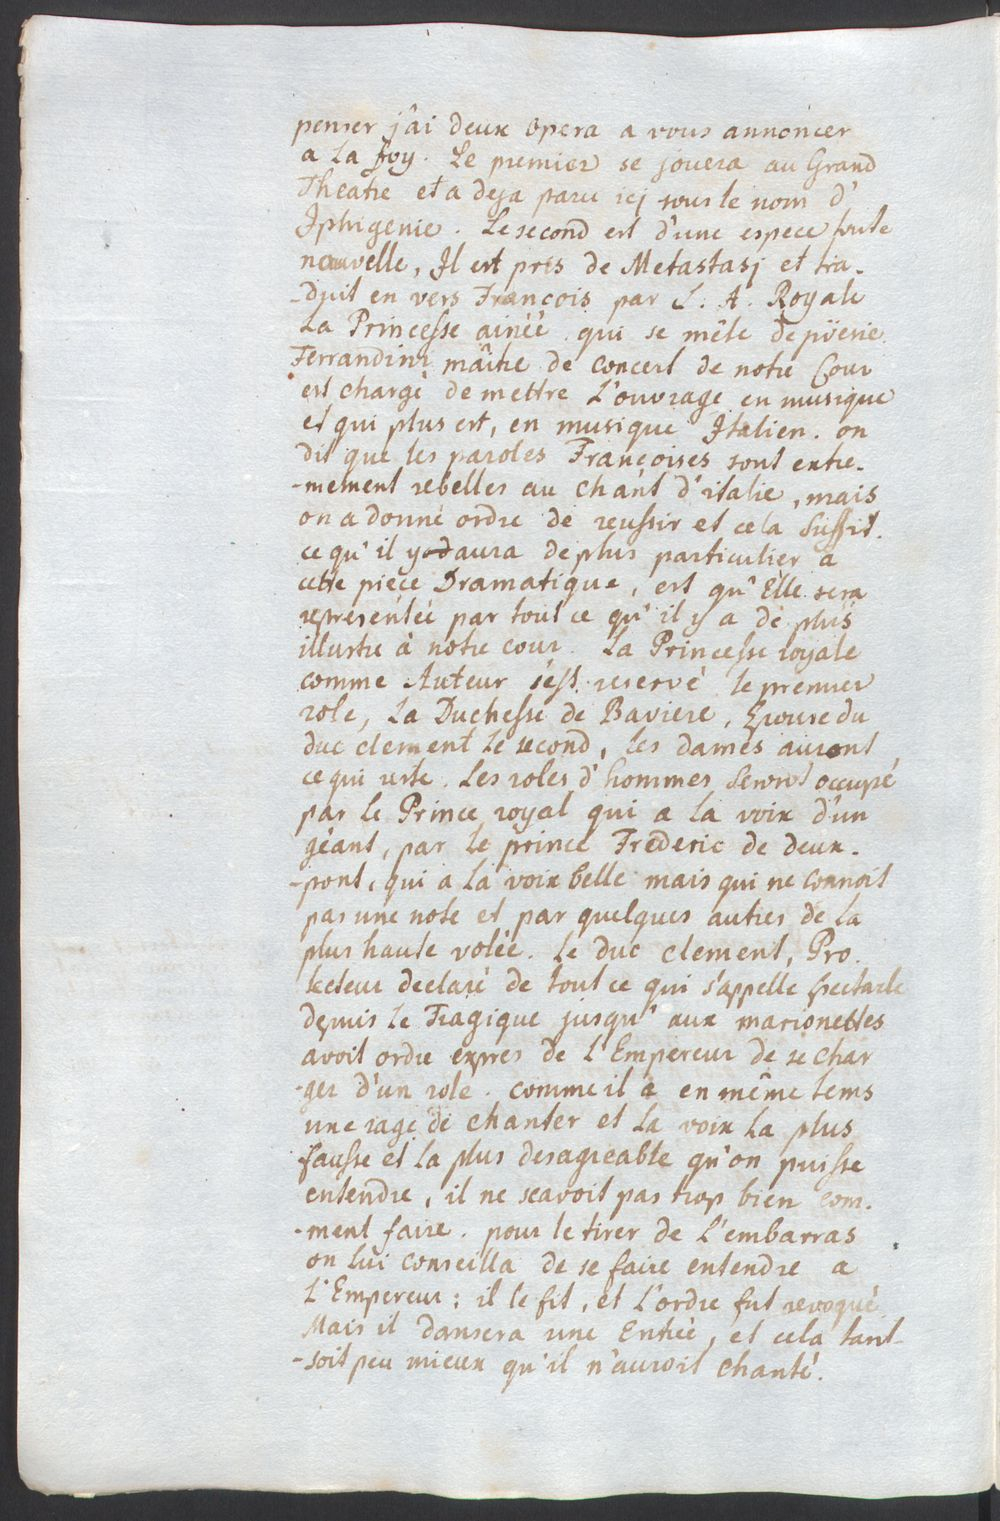 penser j'ai deux opera a vous annoncer
a la foy. Le premier se jouera au Grand
Theatre et a deja paru icj sous le nom d'
Iphigenie. Le second est d'une espece toute
nouvelle, Il est pris de Metastasj et tra-
-duit en vers François par S. A. Royale
La Princesse ainéé qui se mêle de pöesie.
Ferrandini mâitre de concert de notre Cour
est chargé de mettre L'ouvrage en musique
et qui plus est, en musique Italien. on
dit que les paroles Françoises sont extre-
-mement rebelles au chant d'italie, mais
on a donné ordre de reussir et cela suffit.
ce qu'il y aura de plus particulier a
cette piece Dramatique, est qu'Elle sera
representéé par tout ce qu'il y a de plus
illustre à notre cour. La Princesse royale
comme Auteur s'est reservé le premier
role, La Duchesse de Baviere, Epouse du
duc clement le second, les dames auront
ce qui reste. Les roles d'hommes seront occupé
par le Prince royal qui a la voix d'un
géant, par le prince Frederic de deux-
-pont, qui a la voix belle mais qui ne connoit
pas une note et par quelques autres de la
plus haute volée. Le duc clement, Pro-
tecteur declaré de tout ce qui s'appelle spectacle
depuis le Tragique jusqu'aux marionettes
avoit ordre expres de L'Empereur de se char
-ger d'un role. comme il a en même tems
une rage de chanter et la voix la plus
fausse et la plus desagreable qu'on puisse
entendre, il ne scavoit pas trop bien com-
-ment faire. pour le tirer de L'embarras
on lui conseilla de se faire entendre a
L'Empereur; il le fit, et L'ordre fut revoqué
Mais il dansera une Entréé, et cela tant-
-soit peu mieux qu'il n'auroit chanté.